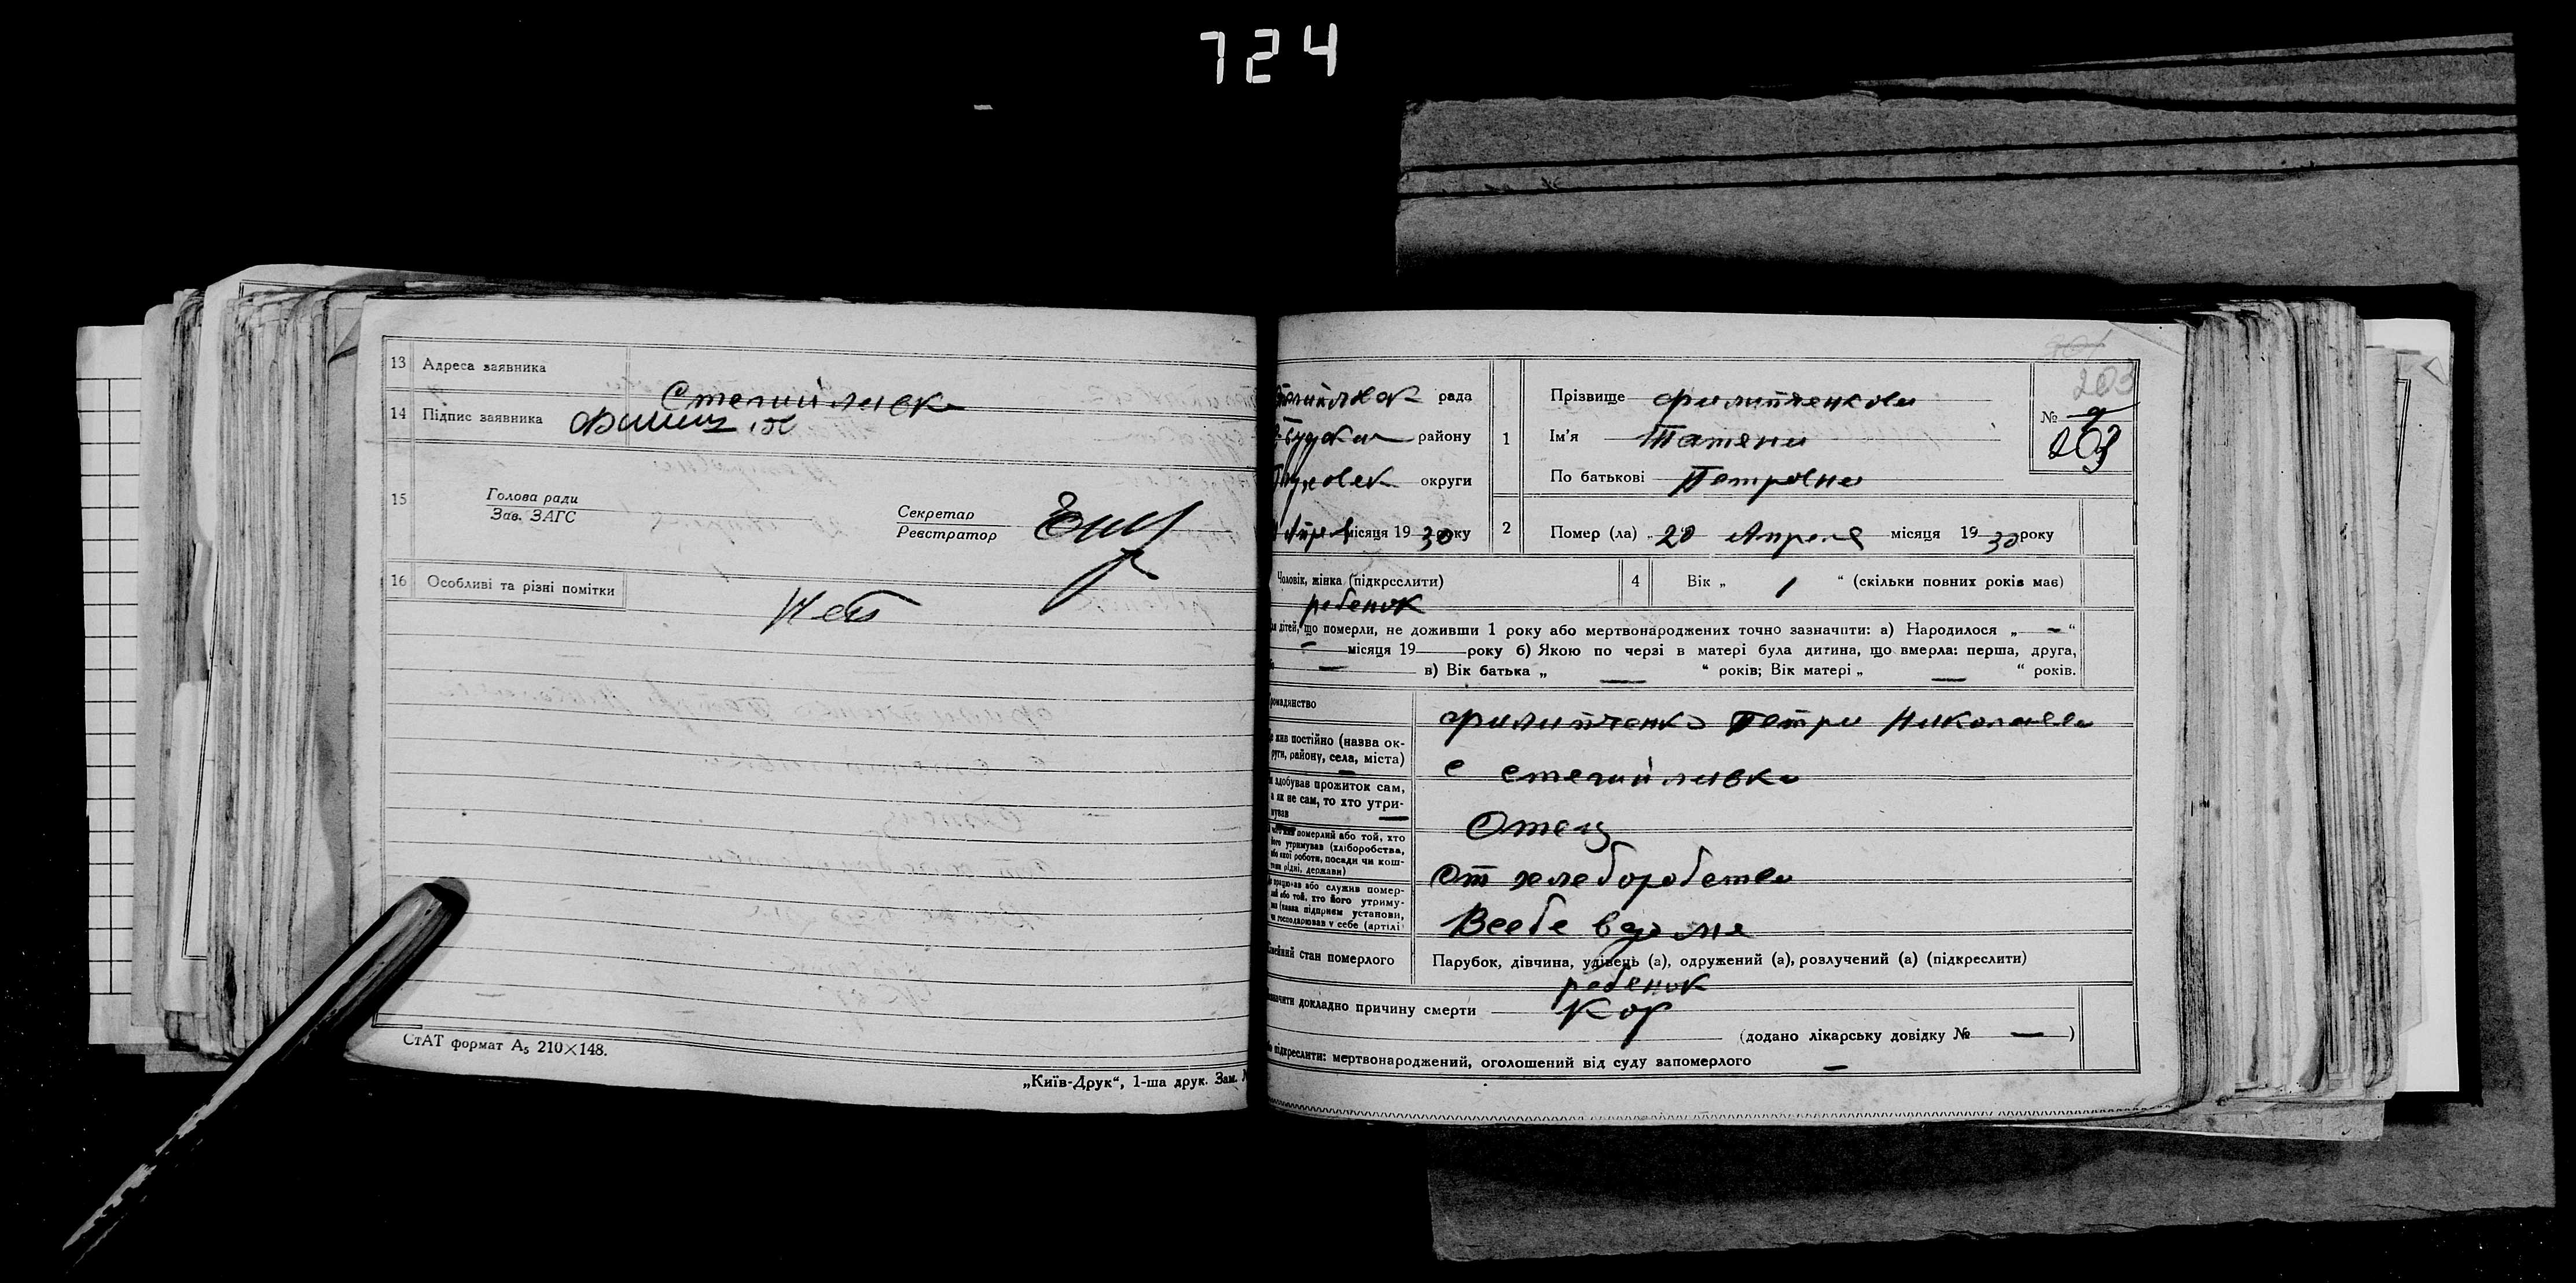 724
13 Адреса заявника
Стегайловка
14 Підпис заявника
15 Голова ради
Зав. ЗАГС
Секретар
Реєстратор
16 Особливі та різні помітки
Нет
СтАТ формат А5 210×148.
„Київ-Друк“, 1-ша друк. Зам.
203
№
203
рада
району
округи
місяця 1930 року
1 Прізвище Филипченкова
Ім'я Татяна
По батькові Петровна
2 Помер (ла) 20 Апреля місяця 1930 року
Чоловік, жінка (підкреслити)
ребенок
4 Вік „ 1 “ (скільки повних років має)
дітей, що померли, не доживши 1 року або мертвонароджених точно зазначити: а) Народилося „ — “
— місяця 19 — року б) Якою по черзі в матері була дитина, що вмерла: перша, друга,
— в) Вік батька „ — “ років; Вік матері „ — “ років.
Филипченко Петра Николаева
жив постійно (назва ок-
руги, району, села, міста)
с Стегайловка
здобував прожиток сам,
а як не сам, то хто утри-
мував
Отец
померлий або той, хто
його утримував (хліборобства,
або якої роботи, посади чи кош-
тами рідні, держави)
От хлеборобства
працював або служив помер-
лий або той, хто його утриму-
вав (назва підприєм установи,
чи господарював у себе (артілі)
стан померлого
Парубок, дівчина, удівець (а), одружений (а), розлучений (а) (підкреслити)
ребенок
докладно причину смерти Кор
(додано лікарську довідку № — )
підкреслити: мертвонароджений, оголошений від суду запомерлого —